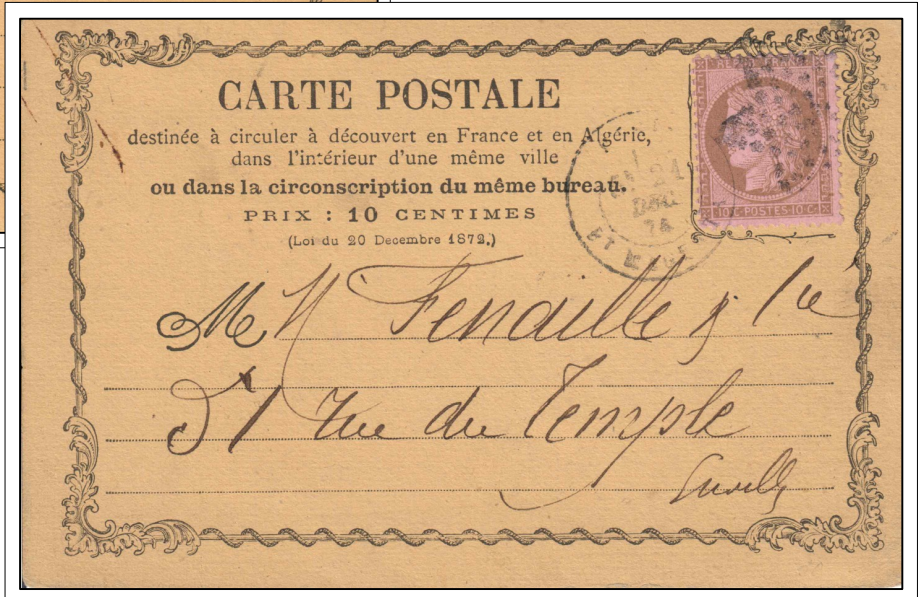 CARTE POSTALE
destinée à circuler à découvert en France et en Algérie,
dans l'intérieur d'une même ville
ou dans la circonscription du même bureau.
PRIX : 10 CENTIMES
(Loi du 20 Decembre 1872,)
10 C · POSTES · 10 C
DEC
MM Fenaille & Cie
rue du Temple